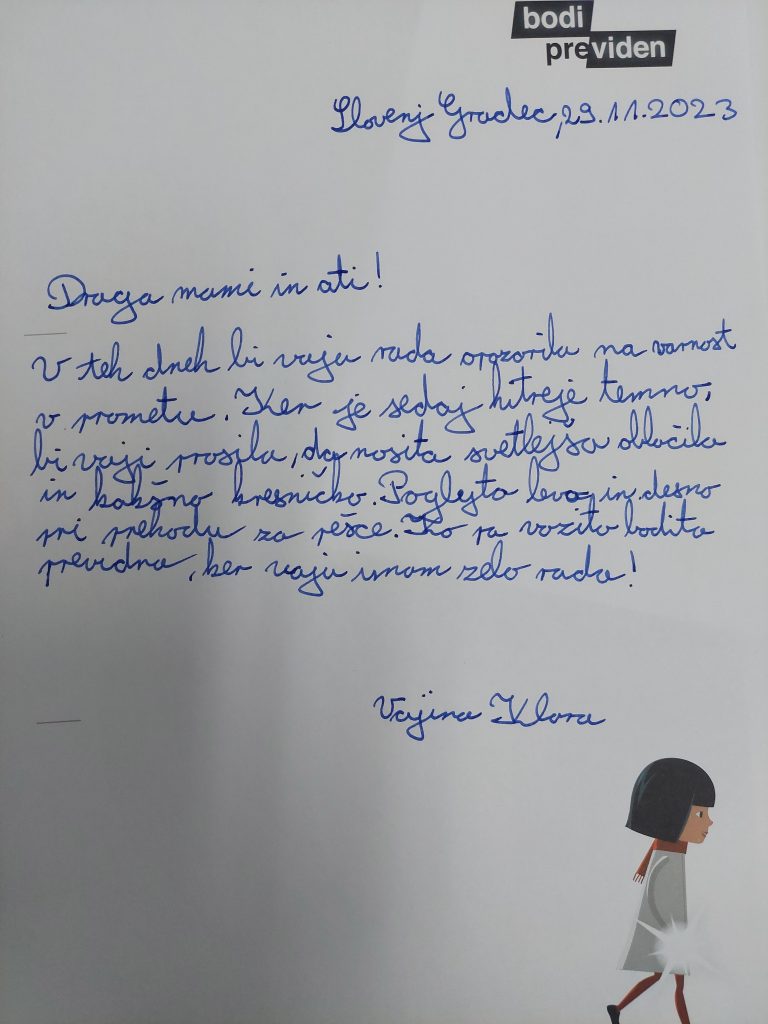 bodi
previden
Slovenj Gradec, 29.11.2023
Draga mami in ati!
V teh dneh bi vaju rada opozorila na varnost
v prometu. Ker je sedaj hitreje temno,
bi vaji prosila, da nosita svetlejša oblačila
in kakšno kresničko. Poglejta levo in desno
pri prehodu za pešce. Ko pa vozita bodita
previdna, ker vaju imam zelo rada!
Vajina Klara